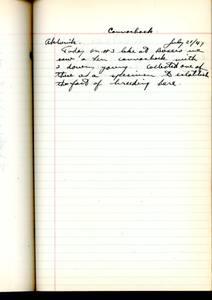 Canvasback
July 25/49
Today on #3 lake at Bassis we
saw a hen canvasback with
3 downy young. Collected one of
these as a specimen to establish
the fact of breeding here.